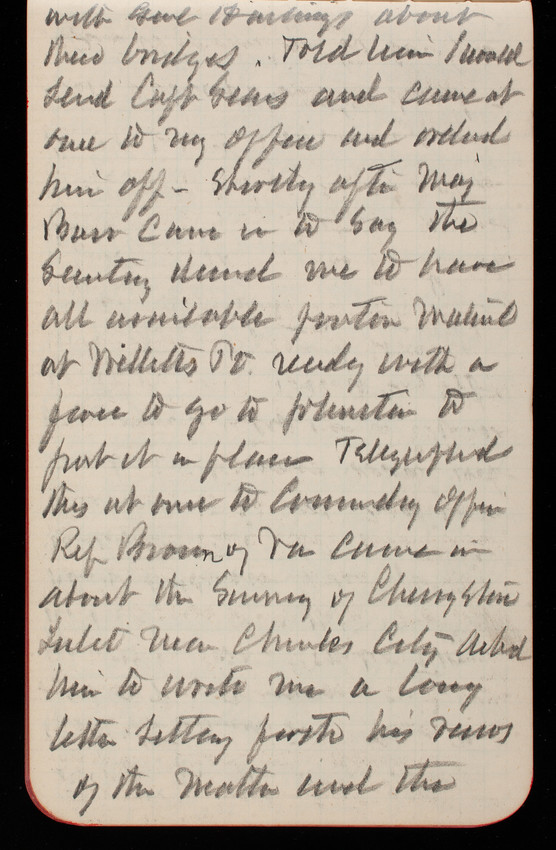 with Genl Hastings about
their bridges. Told him I would
send Capt Sears and came at
once to my office and ordered
him off - Shortly after Maj
Barr came in to say the
Secretary desired me to have
all available ponton material
at Willetts Pt. ready with a
force to go to Johnstown to
put it in place Telegraphed
this at once to Commdg Officer
Rep Brown of Va came in
about the Survey of
Inlet near Charles City Asked
him to write me a long
letter setting forth his views
of the matter and the